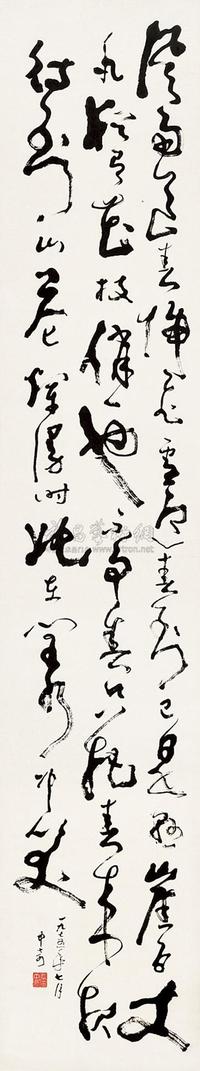 风雨送春归飞雪迎春到已是悬崖百丈
冰犹有花枝俏俏也不争春只把春来报
待到山花烂漫时她在丛中笑
一九七五年七月